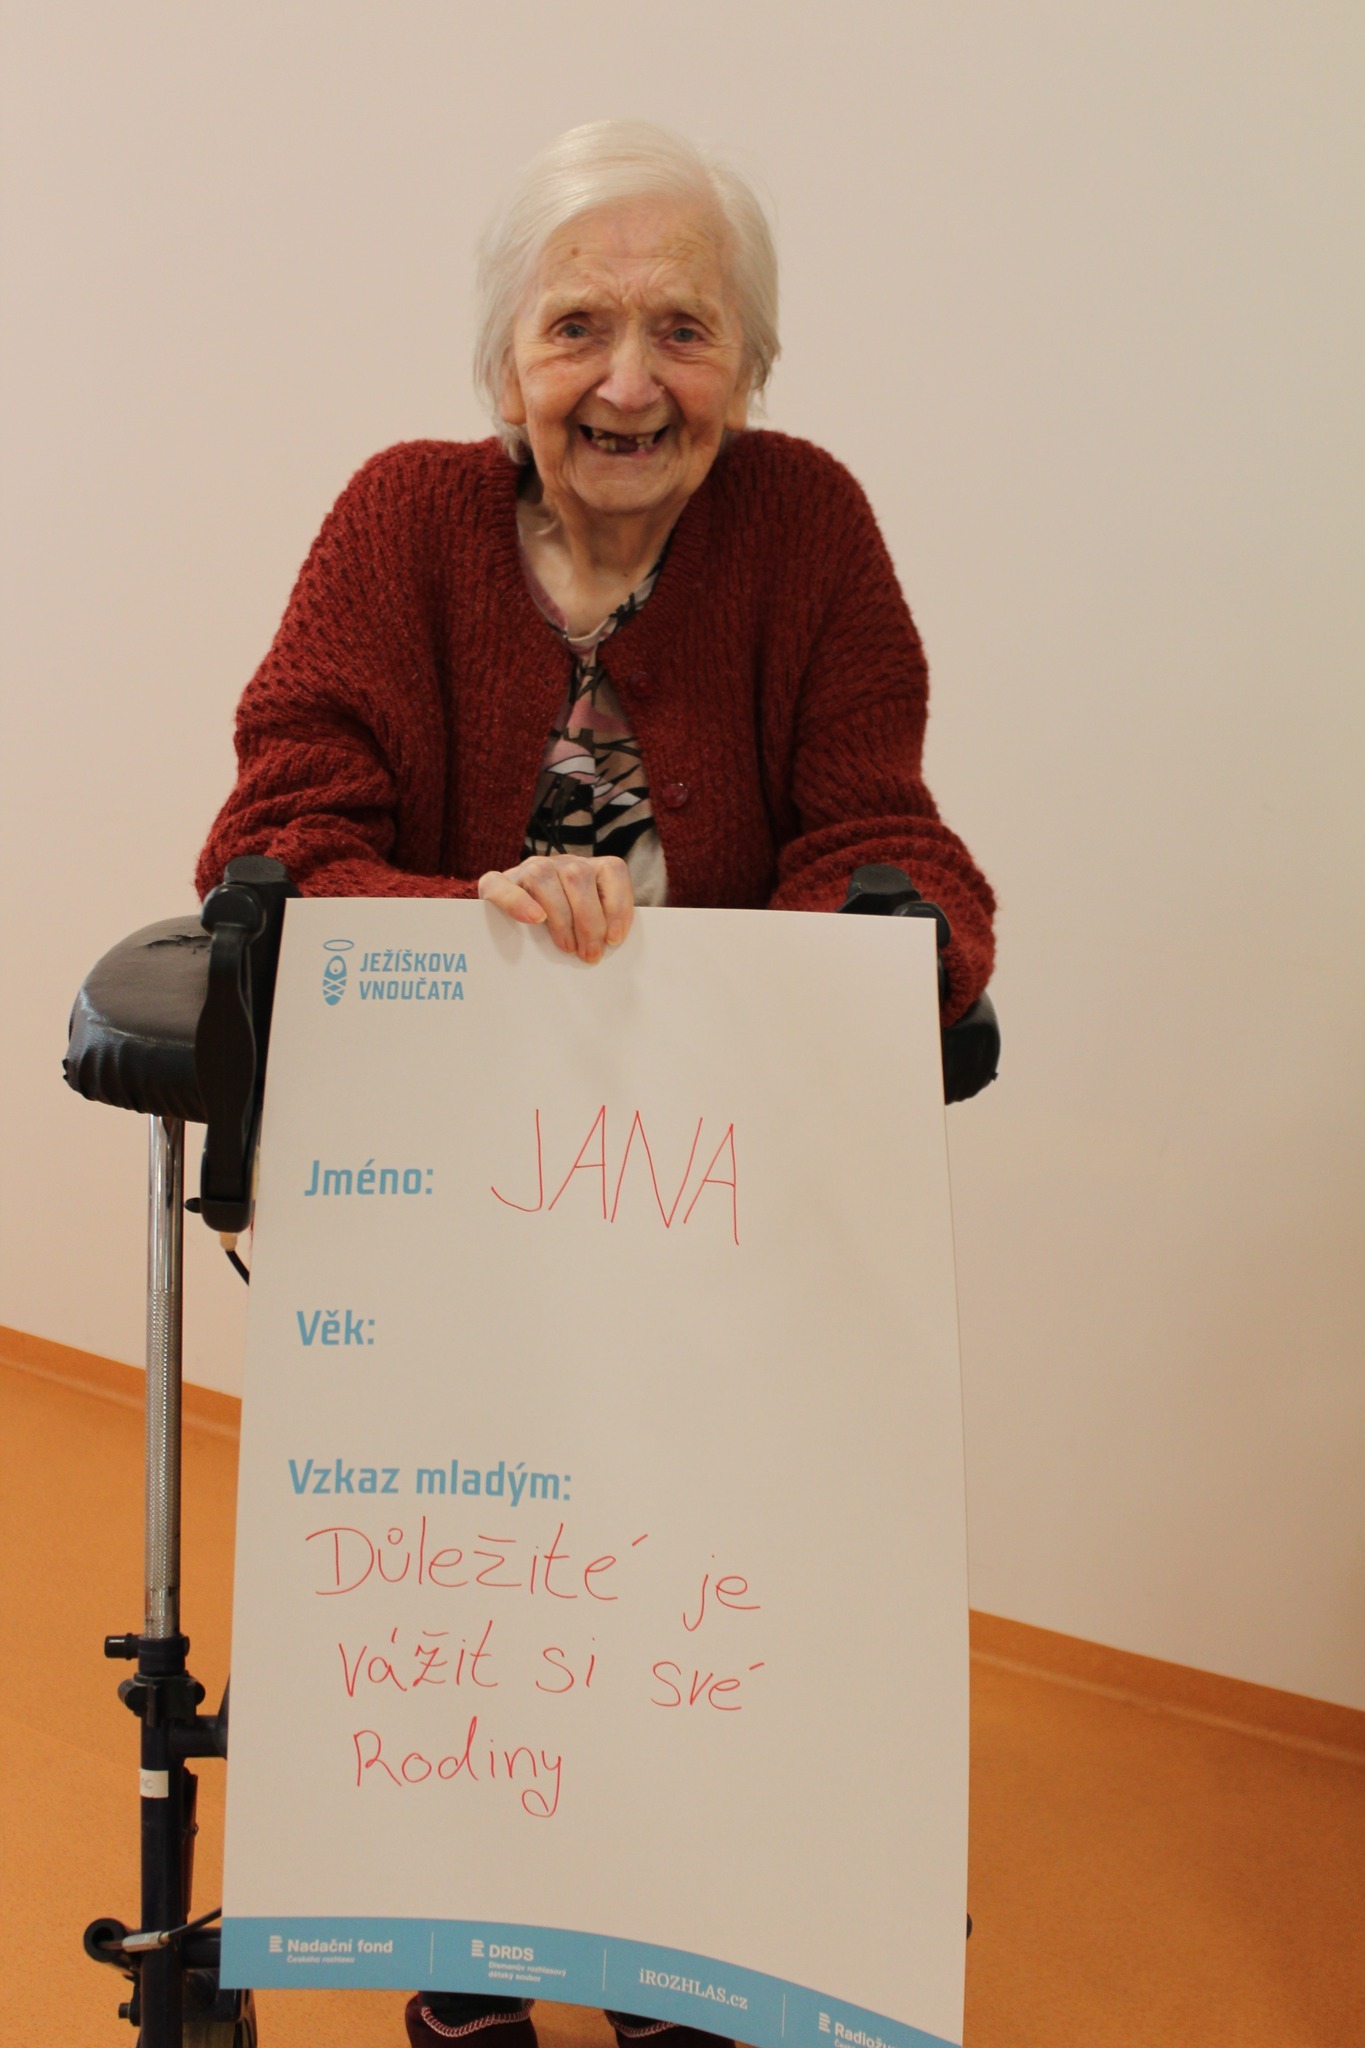 JEŽÍŠKOVA
VNOUČATA
Jméno: JANA
Věk:
Vzkaz mladým:
Důležité je
vážit si své
Rodiny
Nadační fond
Českého rozhlasu
DRDS
Dismanův rozhlasový
dětský soubor
iROZHLAS.cz